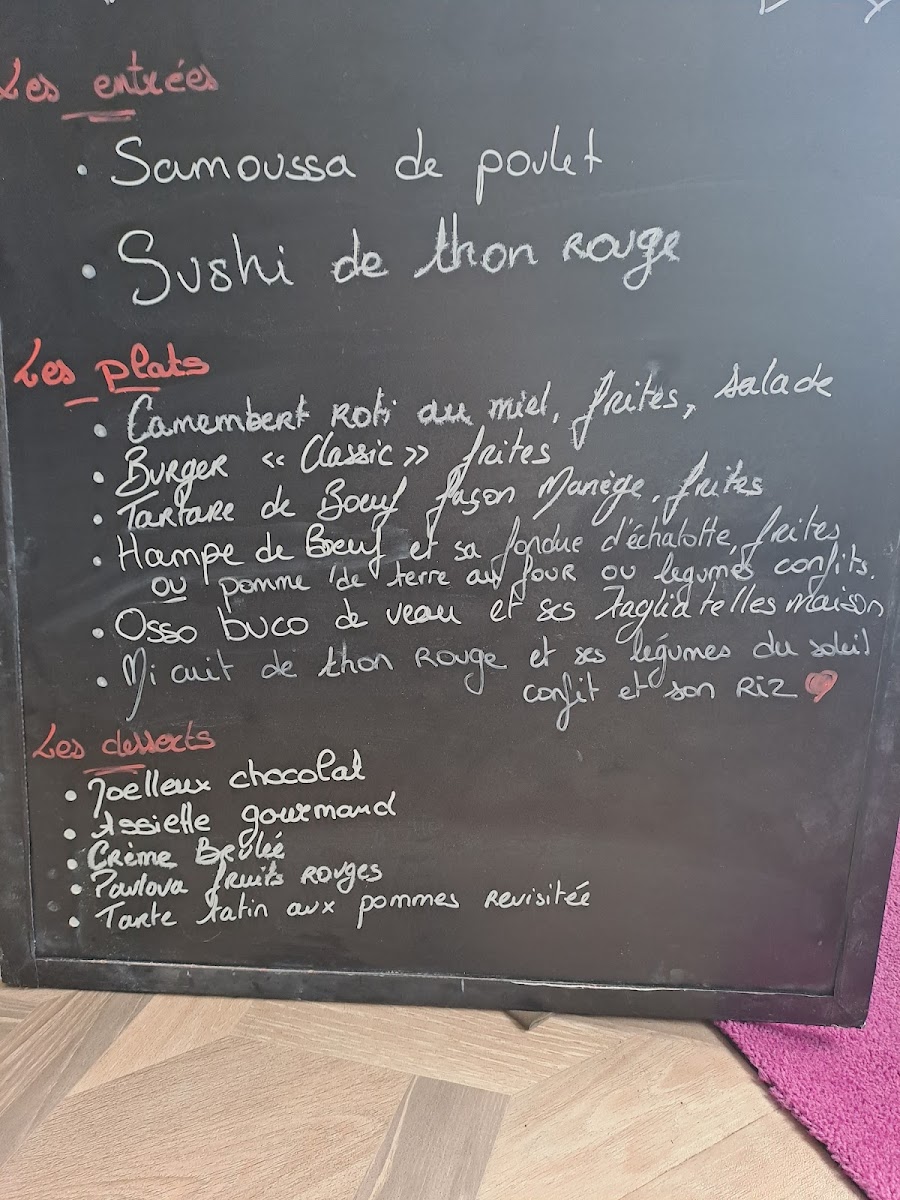 Les entrées
• Samoussa de poulet
• Sushi de thon Rouge
Les plats
• Camembert Roti au miel, frites, salade
• Burger << Classic >> frites
• Tartare de Boeuf façon Manège, frites
• Hampe de Boeuf et sa fondue d'échalotte, frites
ou pomme de terre au four ou legumes confits.
• Osso buco de veau et ses Tagliatelles maison
• Mi cuit de thon Rouge et ses légumes du soleil
confit et son Riz
Les desserts
• Moelleux chocolat
• Assiette gourmand
• Crème Brulée
• Pavlova fruits rouges
• Tarte tatin aux pommes revisitée